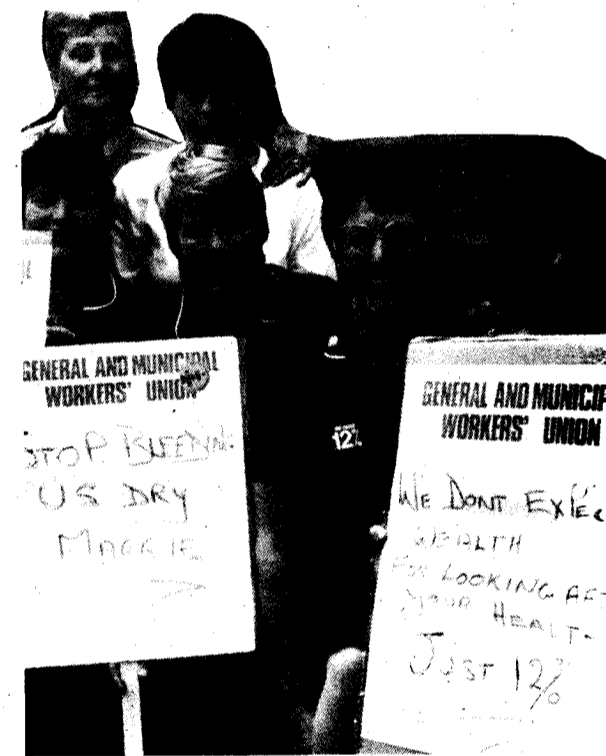 GENERAL AND MUNICIPAL
WORKERS' UNION
STOP BLEEDING
US DRY
MAGGIE
12%
GENERAL AND MUNICIP
WORKERS' UNION
WE DONT EXPEC
WEALTH
FOR LOOKING AFT
YOUR HEALT
JUST 12%